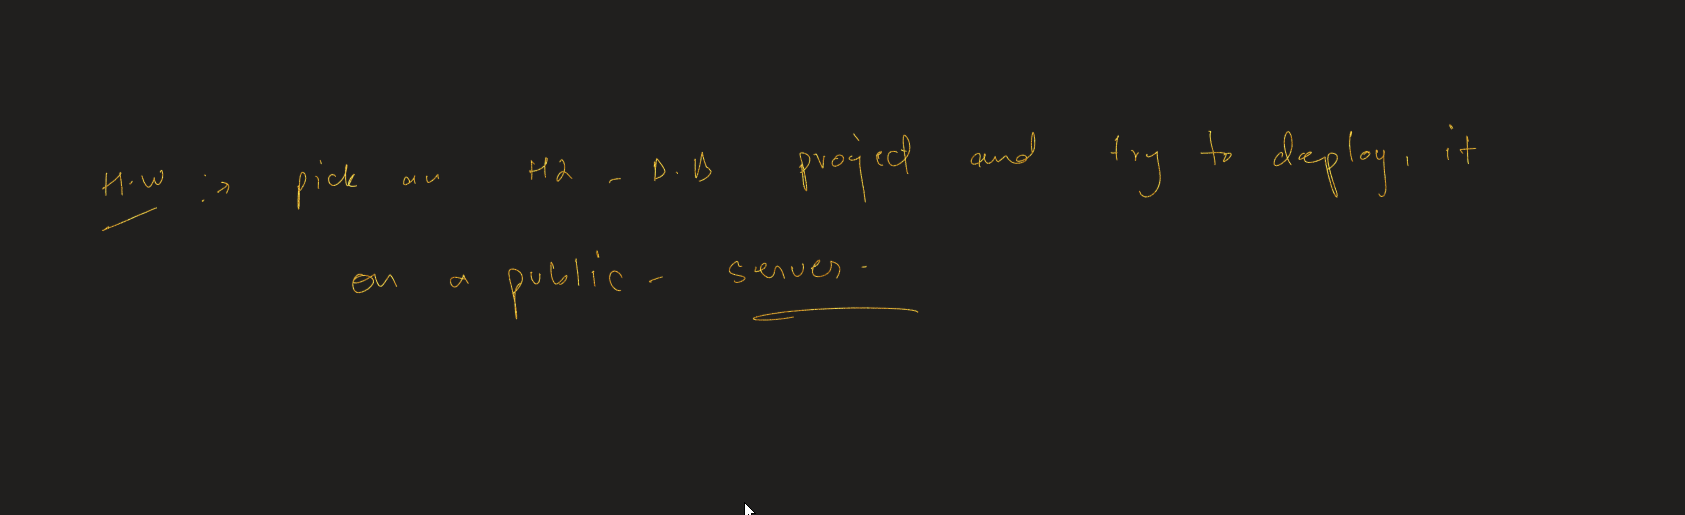 H.W :→ pick an H2 - D.B project and try to deploy, it
on a public - server.